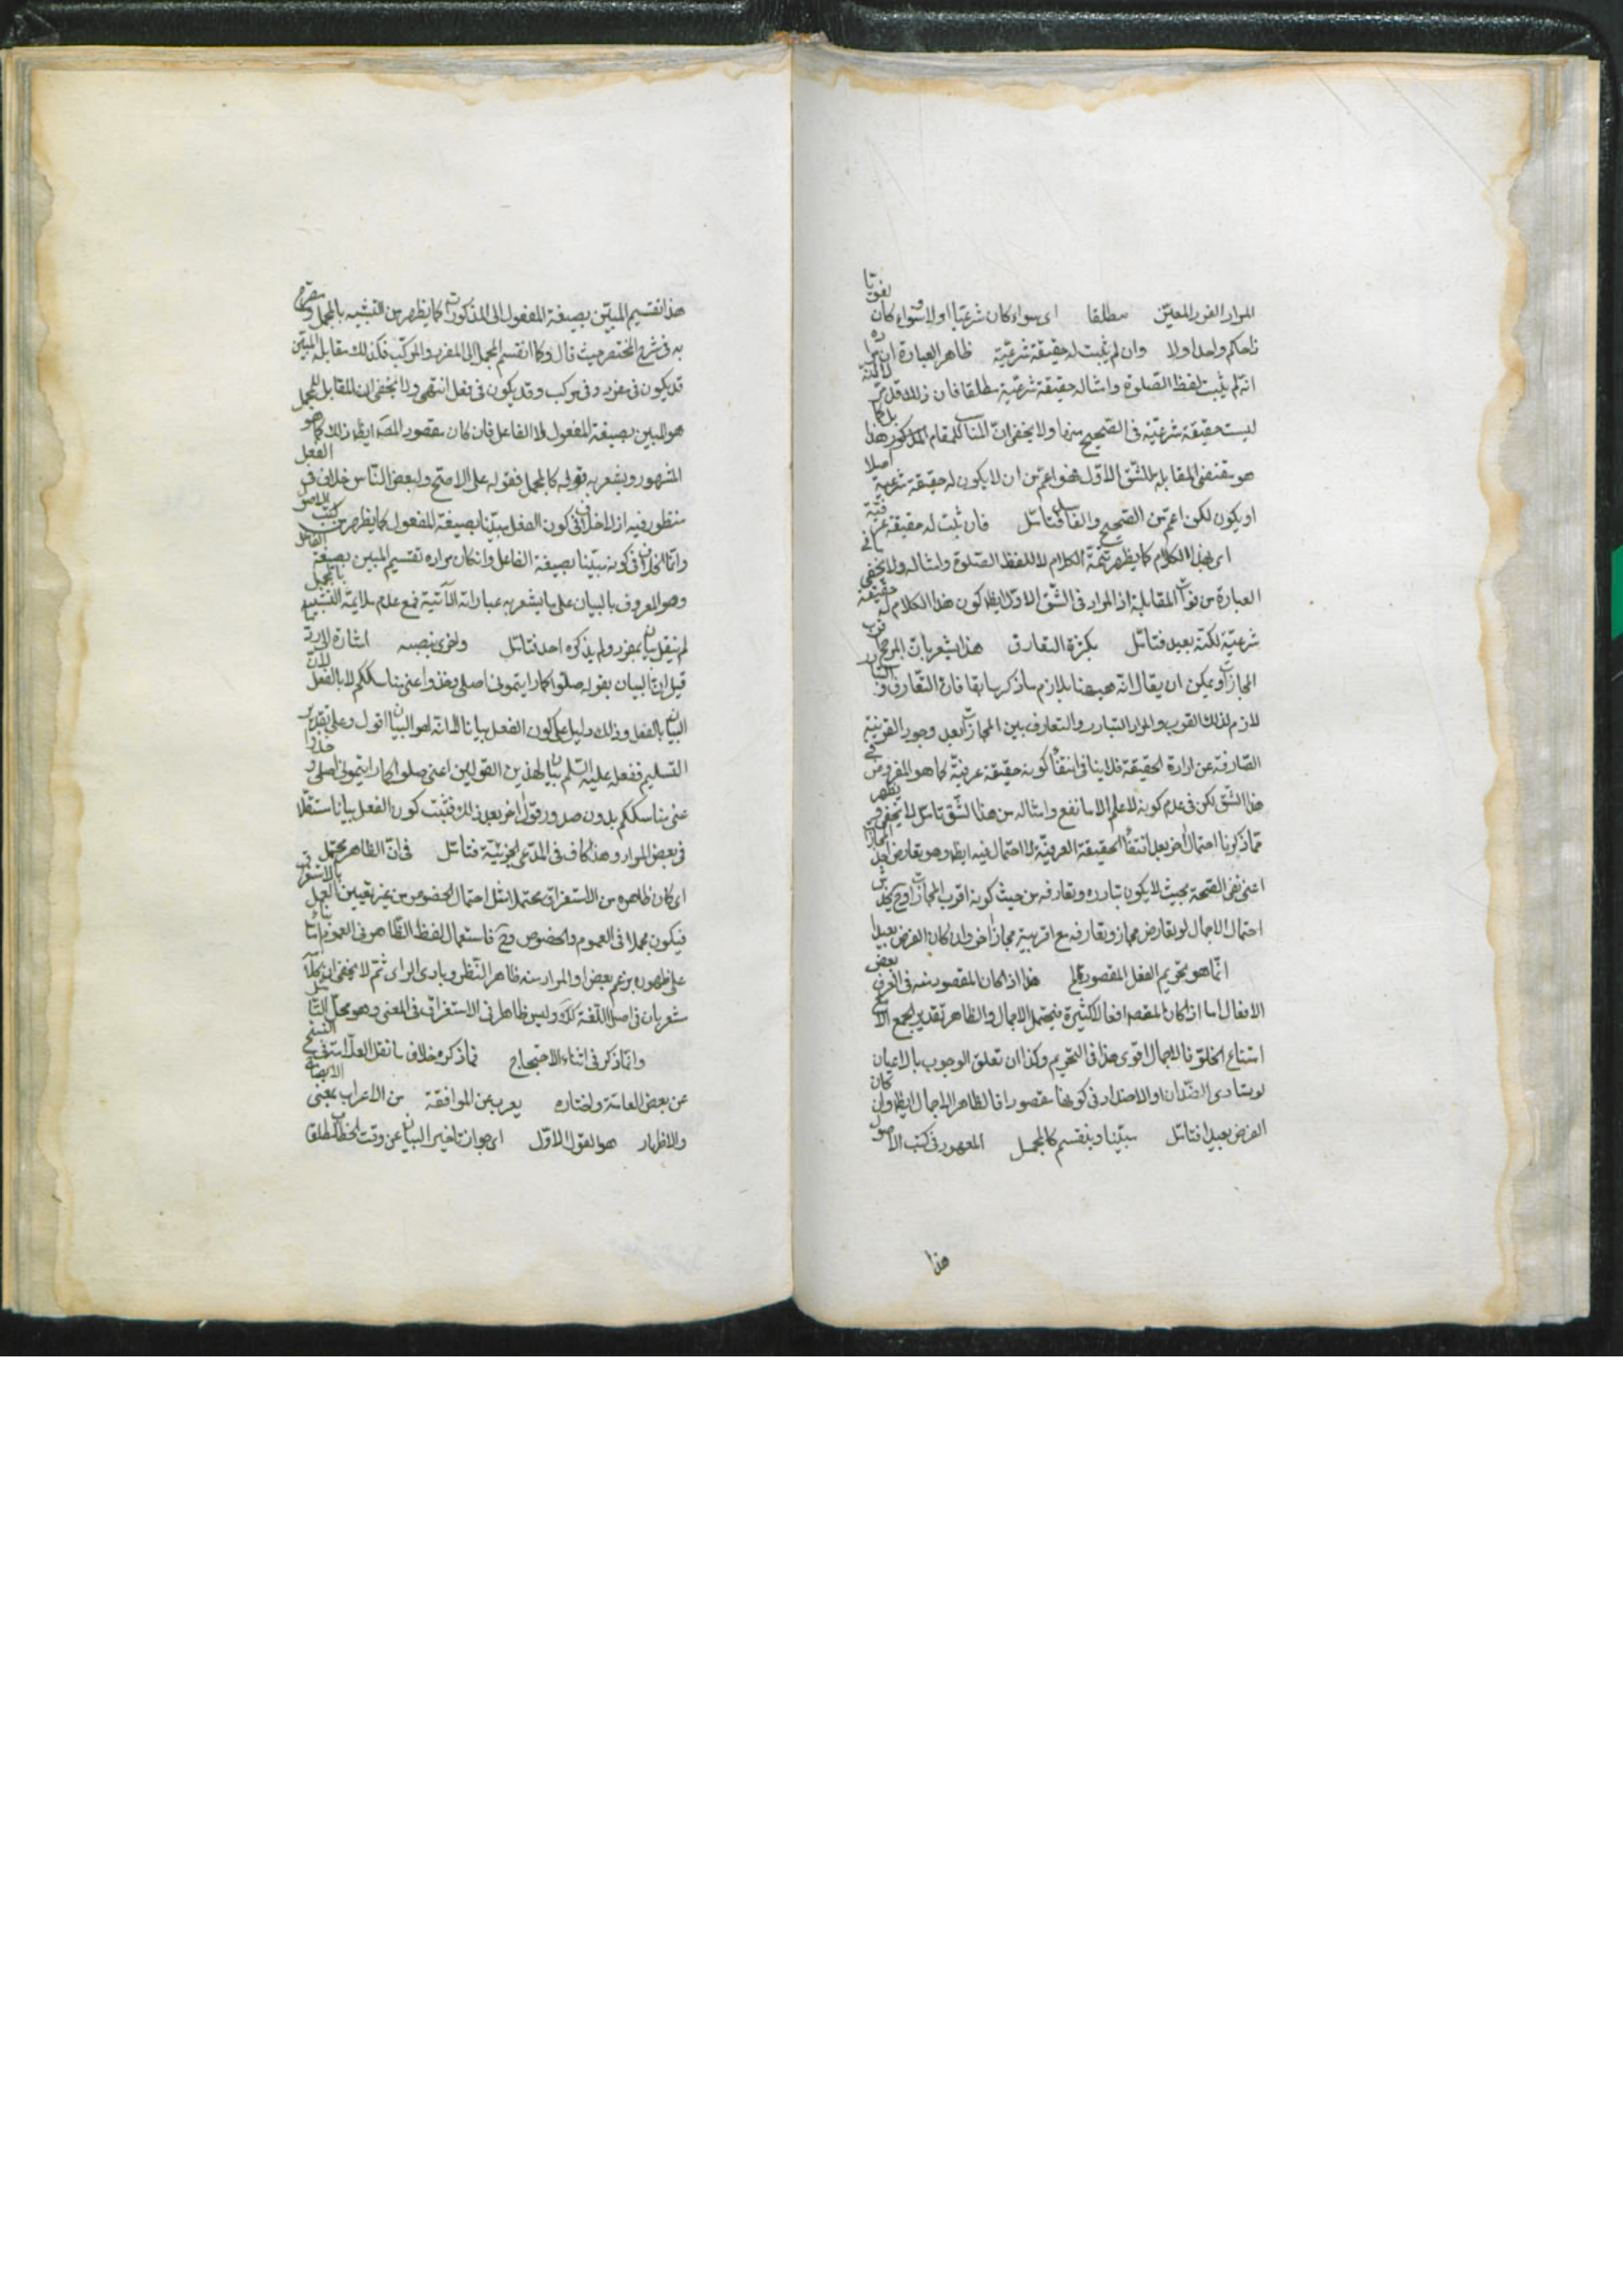 المراد الفرد المعين مطلقا اى سواء كان شرعيا او لا وسواء كان لغويا
ذا حكم واحد او لا وان لم يثبت له حقيقة شرعية ظاهر العبارة ان مراده
انه لم يثبت للفظ الصلوة وامثاله حقيقة شرعية مطلقا فان ذلك قد
ليست حقيقة شرعية فى الصحيح منها ولا يخفى ان المناسب للمقام المذكور هذا بل كما
هو مقتضى المقابلة للشق الاول هو اعم من ان لا يكون له حقيقة شرعية اصلا
او يكون لكن اعم من الصحيح والفاسد فتامل فان ثبت له حقيقة عرفية
اى لهذا الكلام كما يظهر بتتمة الكلام لا للفظ الصلوة وامثاله ولا يخفى ما فى
العبارة من فوات المقابلة اذ المراد فى الشق الاول ايظ كون هذا الكلام له حقيقة
شرعية لكنه بعيد فتامل بكثرة التعارف هذا يشعر بان المرجح
المجازات ويمكن ان يقال انه ههنا بلازم ما ذكر سابقا فان التعارف و التبادر
لازم لذلك القرب والمراد التبادر والتعارف بين المجازات بعد وجود القرينة
الصارفة عن ارادة الحقيقة فلا ينافى انتفاء كونه حقيقة عرفية كما هو المفروض فى
هذا الشق لكن فى عدم كونه لا علم الا ما نفع وامثاله من هذا الشق تامل لا يخفى ويظهر
مما ذكرنا احتمال اخر بعد انتفاء الحقيقة العرفية لا احتمال فيه ايظ وهو تعارض احد المجازات
اعنى نفى الصحة بحيث لا يكون تبادره وتعارفه من حيث كونه اقرب المجازات وح
احتمال الاجمال لو تعارض مجاز وتعارفه مع اقربية مجاز اخر وان كان الفرض بعيدا
انما هو تحريم الفعل المقصود الخ هذا اذا كان المقصود منه فى العرف بعض
الافعال اما اذا كان المقصد افعالا كثيرة فيحتمل الاجمال والظاهر تقدير الجميع
امتناع الخلو فالاجمال اقوى هذا فى التحريم وكذا ان تعلق الوجوب بالاعيان
لو يتادى الضدان او الاضداد فى كونها مقصودا فالظاهر الاجمال ايظ وان كان
الفرض بعيدا فتامل مبينا وينقسم كالمجمل المعهود فى كتب الاصول
هذا
هذا تقسيم المبين بصيغة المفعول الى المذكورات كما يظهر من التشبيه بالمجمل و صرح
به فى شرح المختصر حيث قال وكما انقسم المجمل الى المفرد والمركب فكذلك مقابله المبين
قد يكون فى مفرد وفى مركب وقد يكون فى فعل انتهى ولا يخفى ان المقابل للمجمل
هو المبين بصيغة المفعول لا الفاعل فان كان مقصود المصه ايظ ذلك كما هو
المشهور ويشعر به قوله كالمجمل فقوله على الاصح ولبعض الناس خلاف فى الفعل
منظور فيه اذ لا خلاف فى كون الفعل مبينا بصيغة المفعول كما يظهر من كتب الاصول
وانما الخلاف فى كونه مبينا بصيغة الفاعل وان كان مراده تقسيم المبين بصيغة الفاعل
وهو المعروف بالبيان على ما يشعر به عباراته الآتية فمع عدم ملايمة التشبيه بالمجمل
لم ينقل بيان بمفرد ولم يذكره احد فتامل واخرى بنصبه اشارة الى رد ما
قيل ان البيان بقوله صلوا كما رايتمونى اصلى وخذوا عنى مناسككم لا بالفعل لان
البيان بالفعل وذلك دليل على كون الفعل بيانا لا انه هو البيان اقول وعلى تقدير
التسليم ففعله عليه السلم بيان لهذين القولين اعنى صلوا كما رايتمونى اصلى و خذوا
عنى مناسككم بدون صدور قول اخر بعد ذلك فثبت كون الفعل بيانا مستقلا
فى بعض الموارد وهذا كاف فى المدعى الجزئية فتامل فى ان الظاهر يحتمل
اى كان ظاهره من الاستغراق محتملا مثل احتمال الخصوص من غير تعيين بالاستغراق
فيكون مجملا فى العموم والخصوص وح فاستعمال لفظ الظاهر فى العموم اما بناء
على ظهوره بزعم بعض او المراد منه ظاهر النظر وبادى الراى ثم لا يخفى ان كلامه
مشعر بان فى اصل اللغة كك وليس ظاهرا فى الاستغراق فى المعنى وهو محل التامل
وانما ذكر فى اثناء الاحتجاج فما ذكره خلاف ما نقل العلامة فى النسخ
عن بعض العامة واختاره يعرب عن الموافقة من الاعراب بمعنى الايضاح
والاظهار هو القول الاول اى جواز تاخير البيان عن وقت الخطاب مطلقا